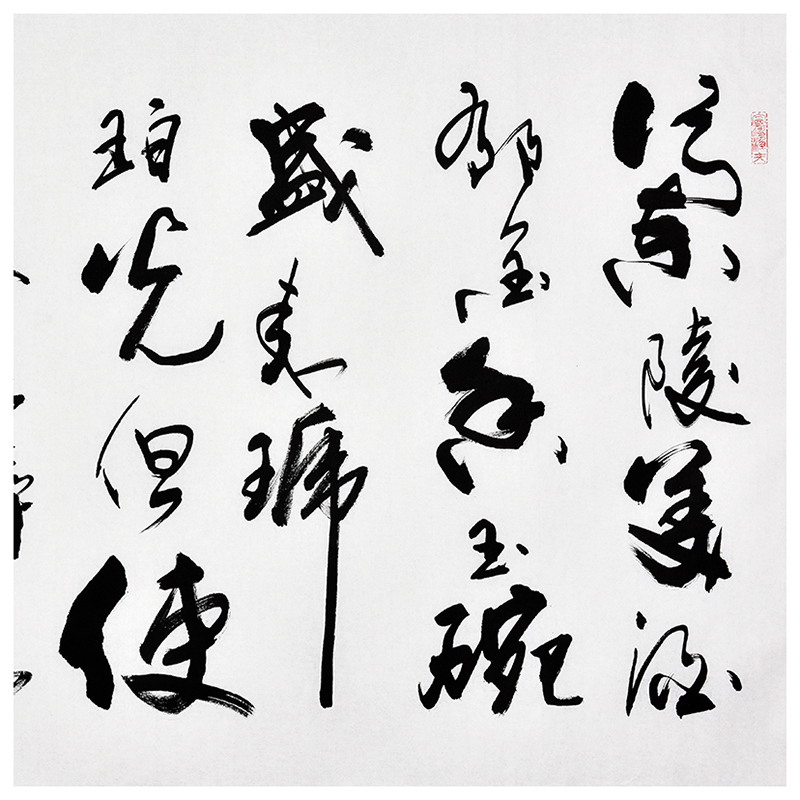 蘭陵美酒
郁金香玉碗
盛来琥
珀光但使